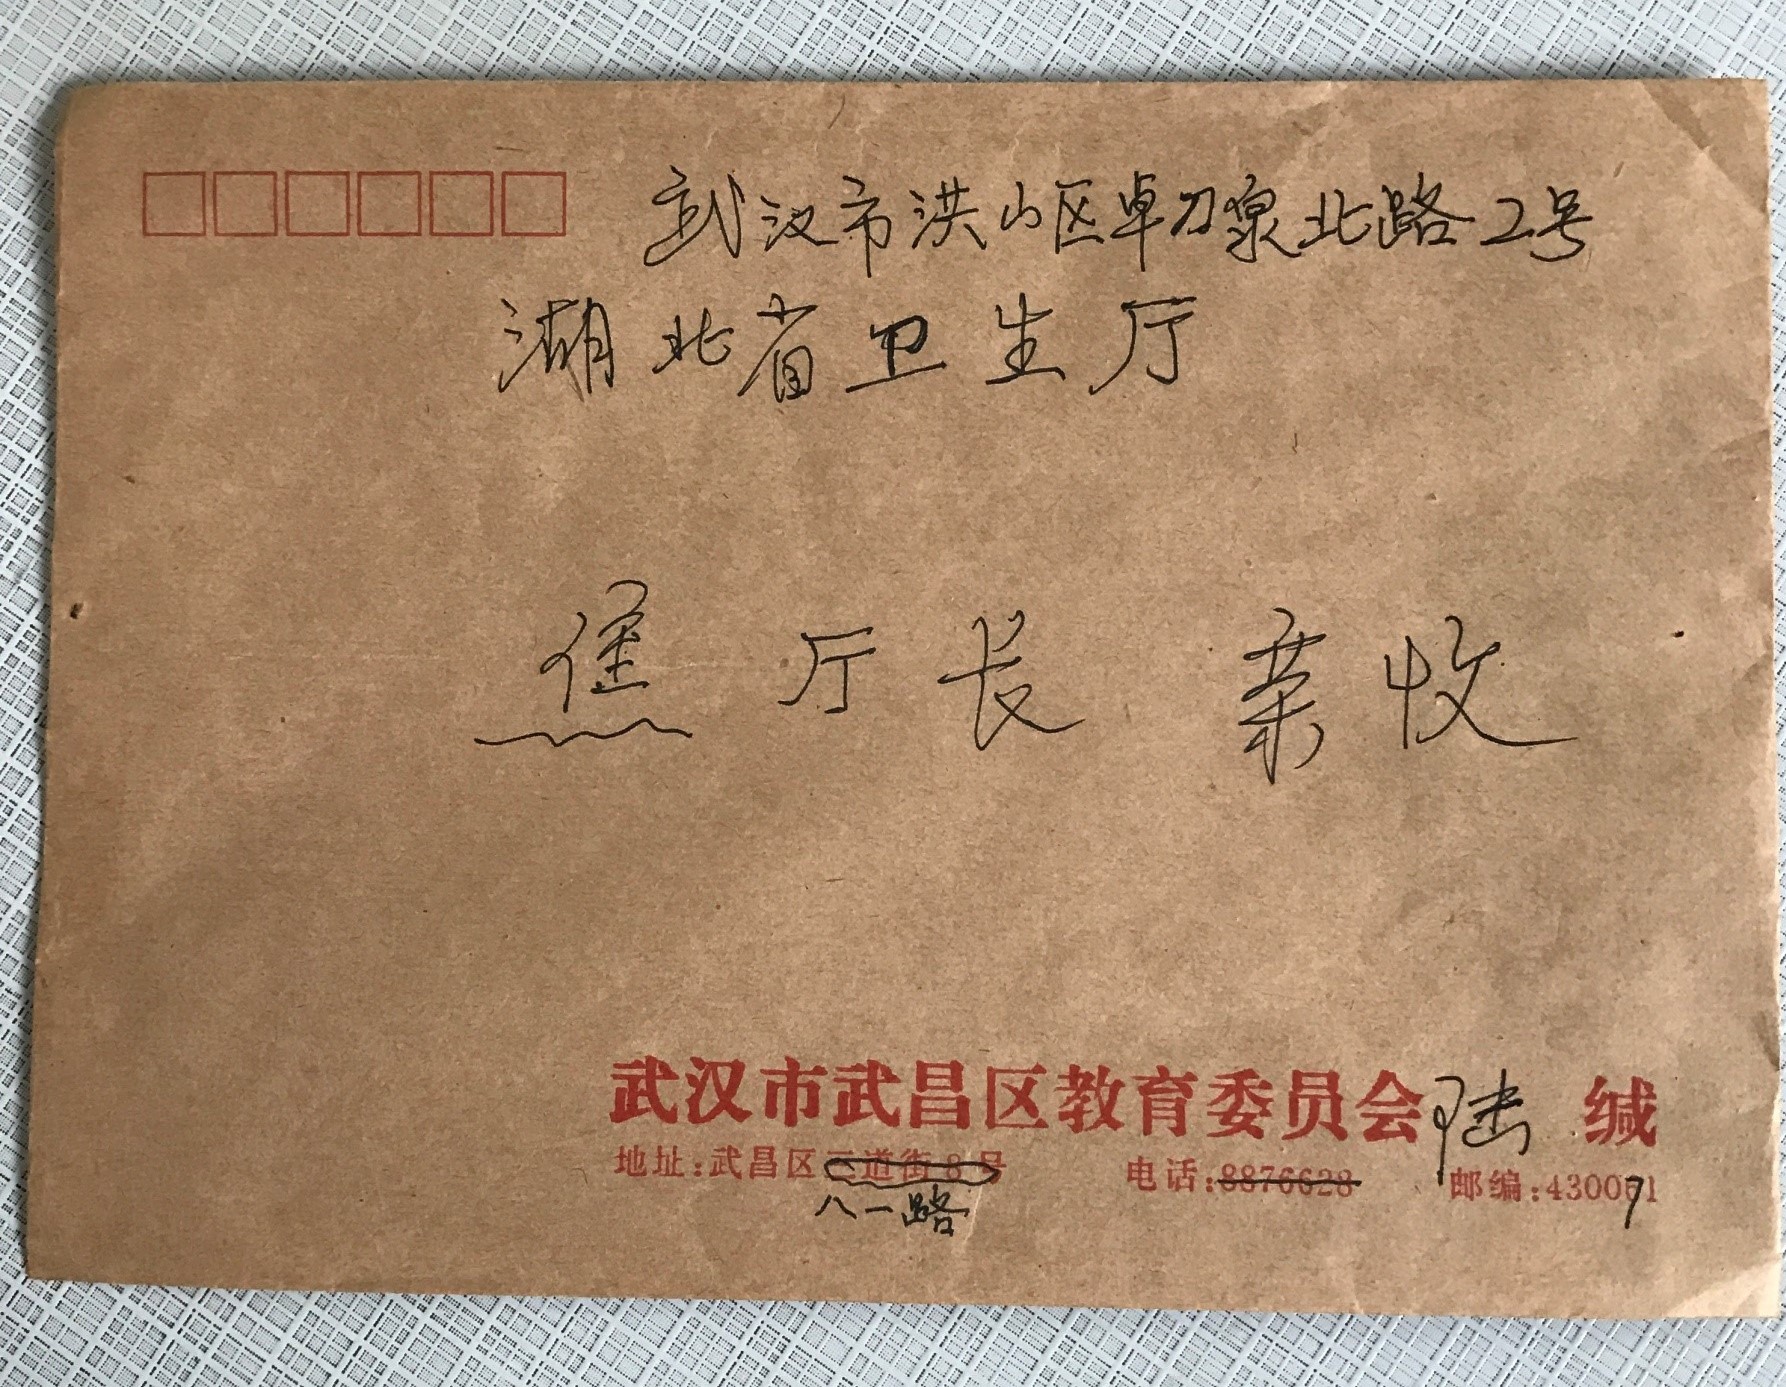 武汉市洪山区卓刀泉北路2号
湖北省卫生厅
焦厅长 亲收
武汉市武昌区教育委员会 陆 缄
地址:武昌区三道街8号 电话:8876628 邮编:430071
八一路